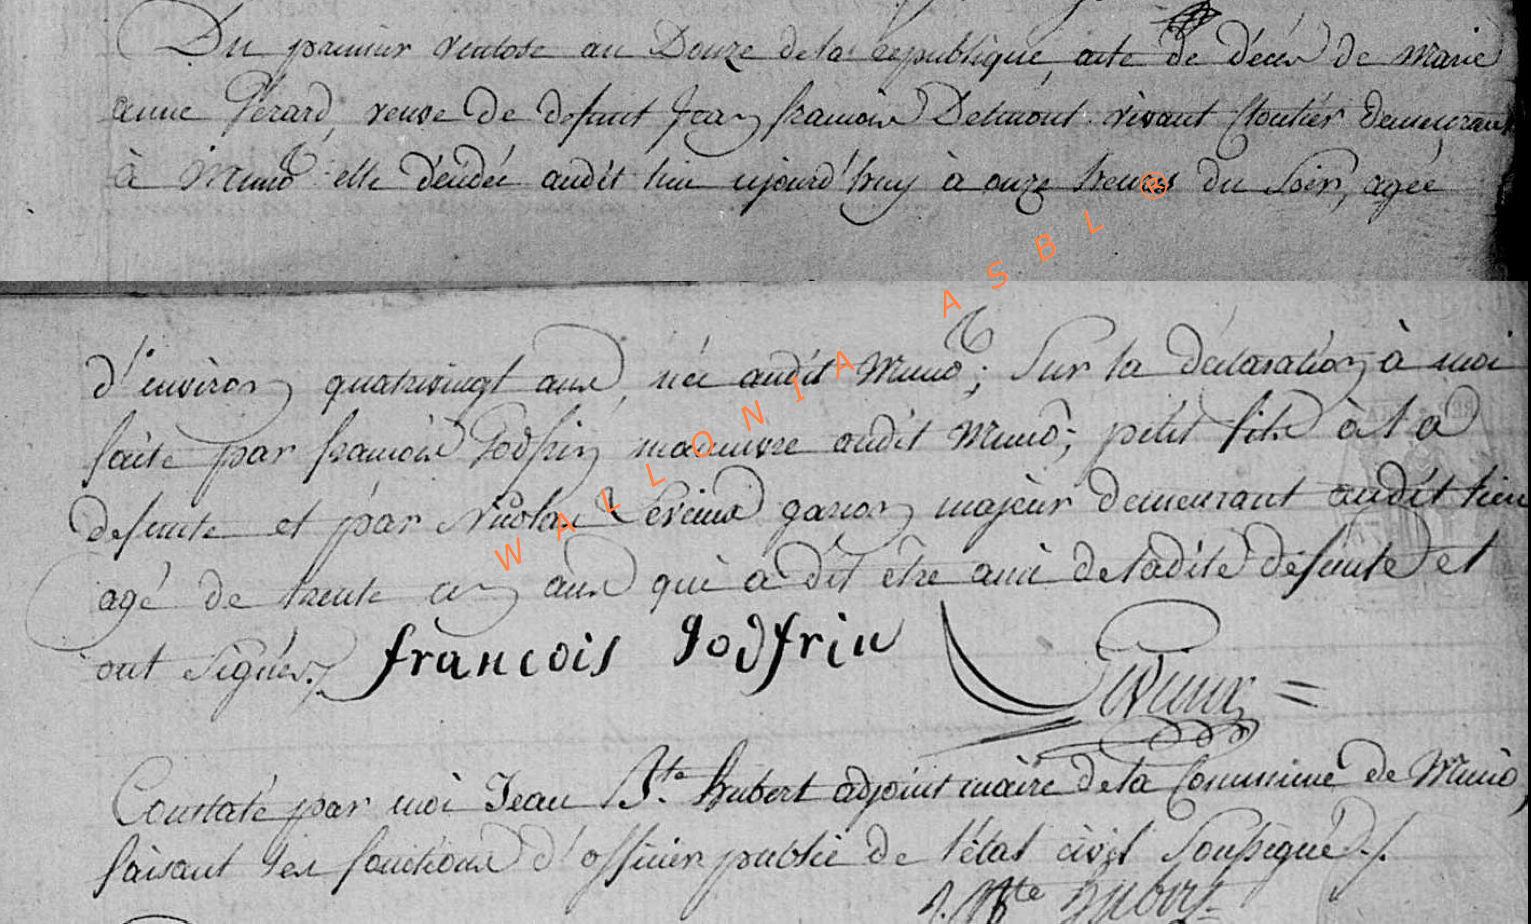 Du premier ventose an Douze de la république, acte de décès de Marie
anne Gérard, veuve de defunt Jean françois Delmont vivant Cloutier demeurant
à Muno elle décédée audit lieu ajourd'huy à onze heures du Soir, agée
d'environ quatrevingt ans, née audit Muno; Sur la déclaration à moi
faite par françois Godfrin manuvre audit Muno; petit fils à la
defunte et par Nicolas Evieux garçon majeur demeurant audit lieu
agé de trente cinq ans qui a dit être ami de ladite défunte et
ont signés./.
francois godfrin
Constaté par moi Jean Bte. hubert adjoint maire de la Commune de Muno,
faisant les fonctions d'officier public de l'état civil Soussigné./.
J. Bte hubert
WALLONIA ASBL ®